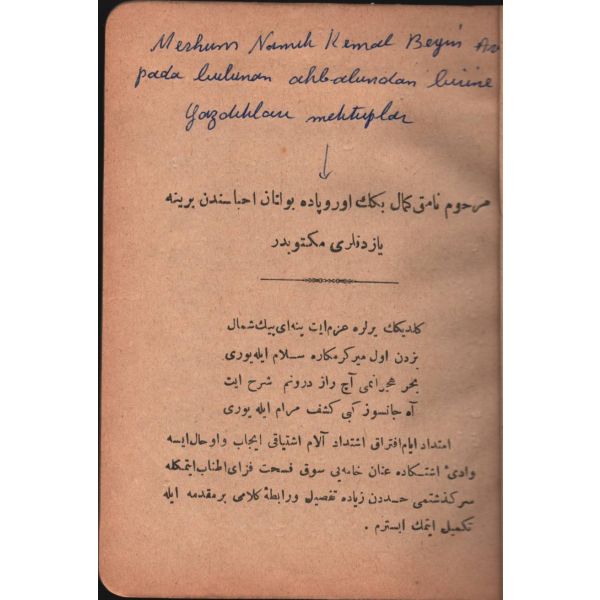 Merhum Namık Kemal Beyin Av
pada bulunan ahbabından birine
Yazdıkları mektuplar
مرحوم نامق كمال بكك اوروپاده بولنان احباسندن برينه
يازدقلرى مكتوبدر
كلديكك يرلره عزم ايت ينه اى پيك شمال
بزدن اول ميركرمكاره سلام ايله يورى
بحر هجرانمى آچ راز درونم شرح ايت
آه جانسوز كبى كشف مرام ايله يورى
امتداد ايام افتراق اشتداد آلام اشتياقى ايجاب و او حال ايسه
وادىٔ اشتكاده عنان خامه‌يى سوق فسحت فزاى اطناب ايتمكله
سركذشتمى حددن زياده تفصيل و رابطهٔ كلامى بر مقدمه ايله
تكميل ايتمك ايسترم .